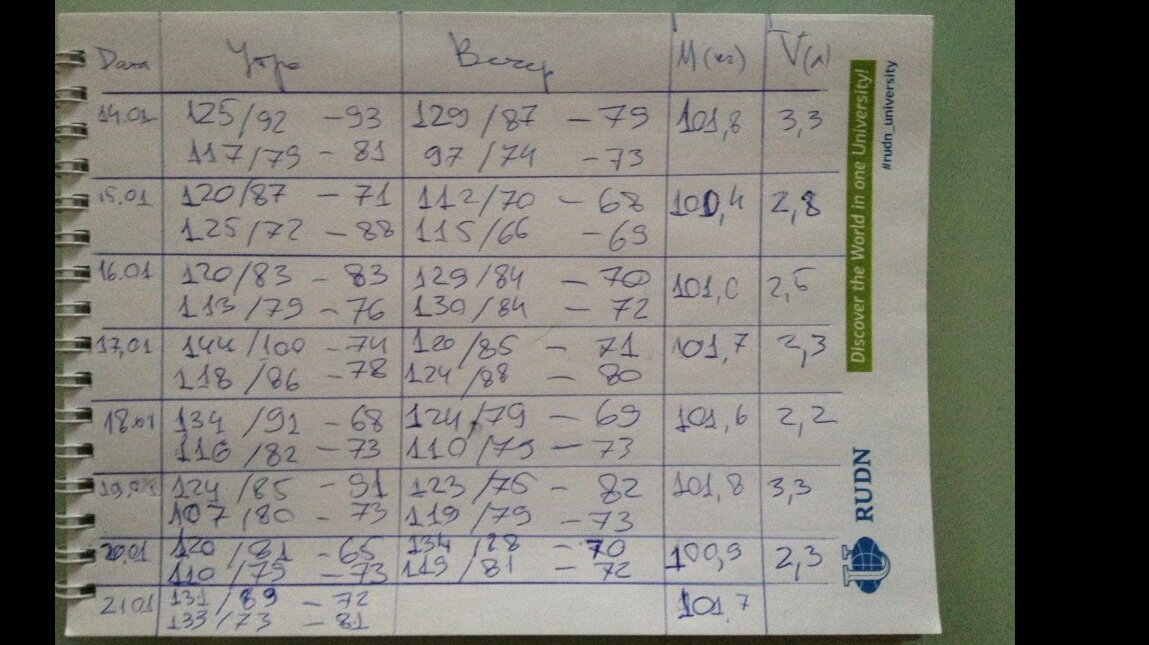 Дата Утро Вечер М(кг) V(л)
14.01 125/92 – 93 129/87 – 79 101,8 3,3
117/79 – 81 97/74 – 73
15.01 120/87 – 71 112/70 – 68 100,4 2,8
125/72 – 88 115/66 – 69
16.01 120/83 – 83 129/84 – 70 101,0
113/79 – 76 130/84 – 72
17.01 144/100 – 74 120/85 – 71 101,7 2,3
118/86 – 78 124/88 – 80
18.01 134/91 – 68 124/79 – 69 101,6 2,2
116/82 – 73 110/79 – 73
19.01 124/85 – 91 123/75 – 82 101,8 3,3
107/80 – 73 119/79 – 73
20.01 120/81 – 65 – 70 100,9 2,3
110/79 – 73 119/81 – 72
21.01 131/89 – 72 101,7
133/73 – 81
Discover the World in one University!
#rudn_university
RUDN